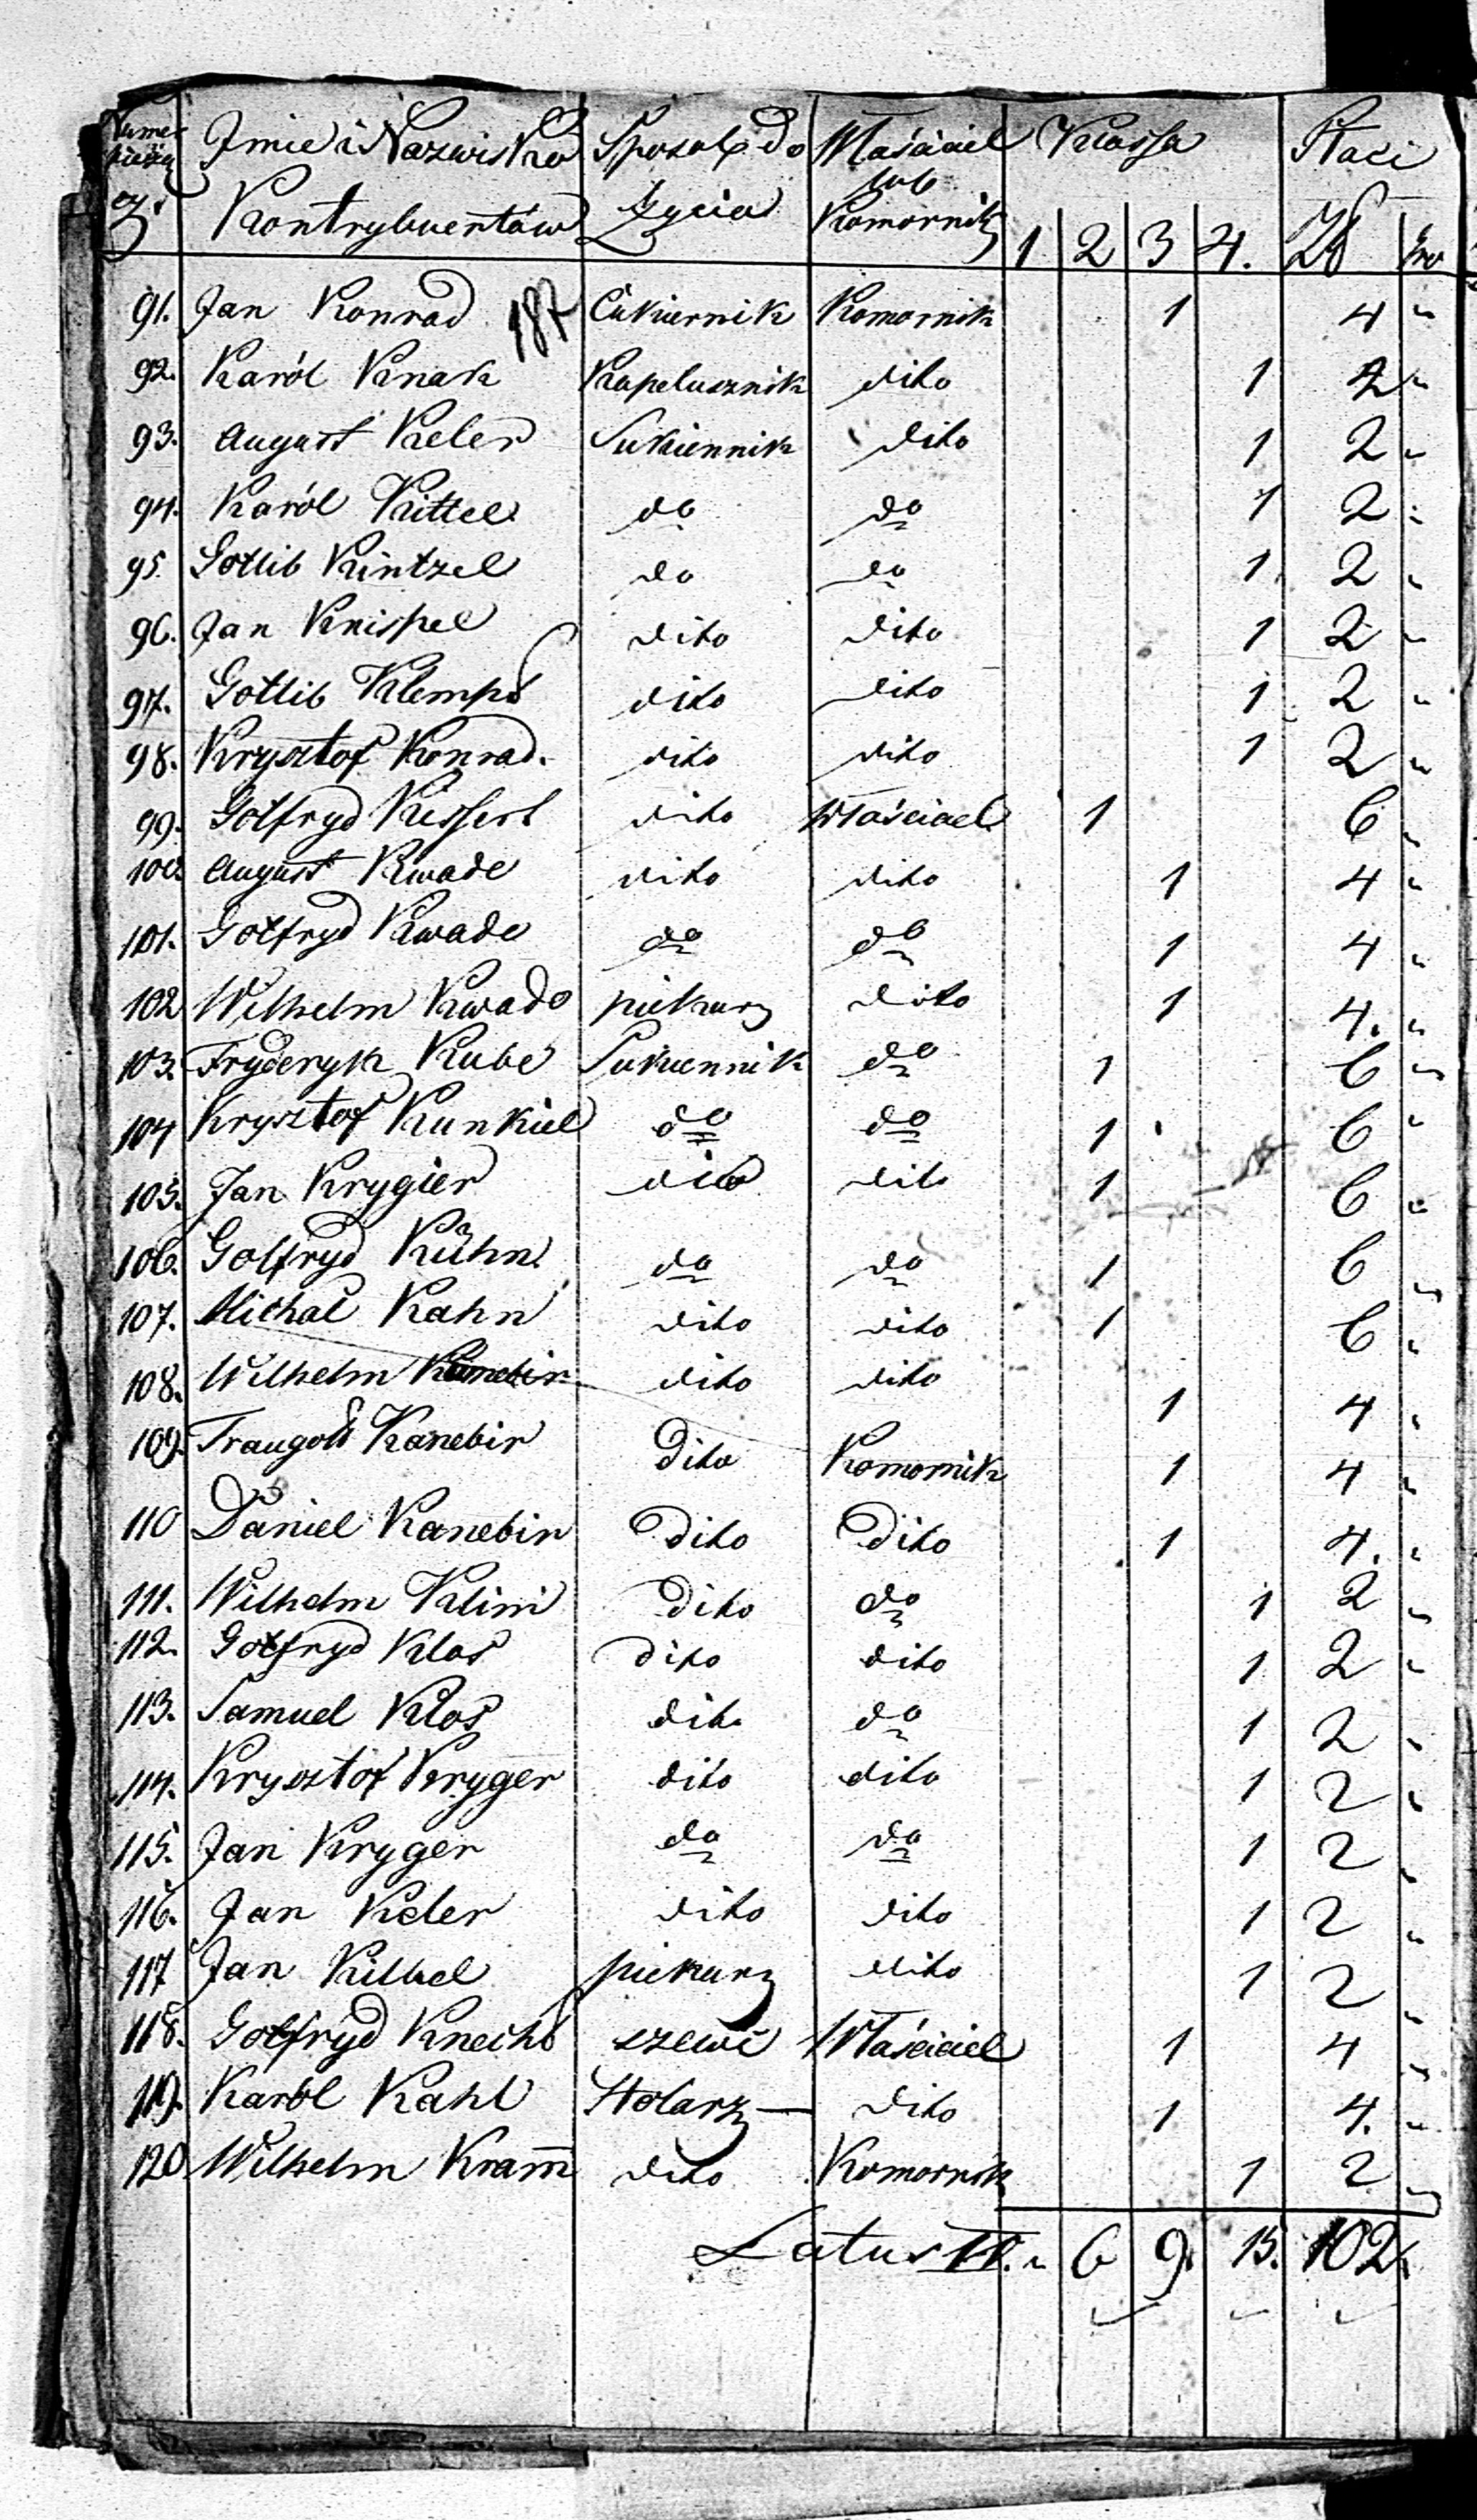 Numer Imie i Nazwisko Sposob do Właściciel Klassa Płaci
bieżą lub
cy. Kontrybuentów Życia Komornik 1 2 3 4. Zł gro
91. Jan Konrad 187 Cukiernik Komornik 1 4 "
92. Karól Knak Kapelusznik dito 1 2 "
93. August Keler Sukiennik dito 1 2 "
94. Karól Kittel do do 1 2 "
95. Gotlib Kintzel do do 1 2 "
96. Jan Knispel dito dito 1 2 "
97. Gotlib Klempt dito dito 1 2 "
98. Krysztof Konrad. dito dito 1 2 "
99. Gotfryd dito Właściciel 1 6 "
100. August Kwade dito dito 1 4 "
101. Gotfryd Kwade do do 1 4 "
102 Wilhelm Kwade piekarz dito 1 4. "
103. Fryderyk Kube Sukiennik do 1 6 "
104 Krysztof Kunkiel do do 1 6 "
105. Jan Krygier dito dito 1 6 "
106. Gotfryd Kühn do do 1 6 "
107. Michal Kahn dito dito 1 6 "
108. Wilhelm Kanebir dito dito 1 4 "
109. Traugott Kanebir Dito Komornik 1 4 "
110 Daniel Kanebir Dito Dito 1 4. "
111. Wilhelm Klim Dito do 1 2 "
112. Gotfryd Klos Dito dito 1 2 "
113. Samuel Klos dito do 1 2 "
114. Krysztof Kryger dito dito 1 2 "
115. Jan Kryger do do 1 2 "
116. Jan Keler dito dito 1 2 "
117 Jan piekarz dito 1 2 "
118. Gotfryd Knecht szewc Właściciel 1 4 "
119. Karól Kahl Stolarz — dito 1 4. "
120 Wilhelm Kram̄ dito Komornik 1 2 "
Latus IV. " 6 9. 15. 102 "